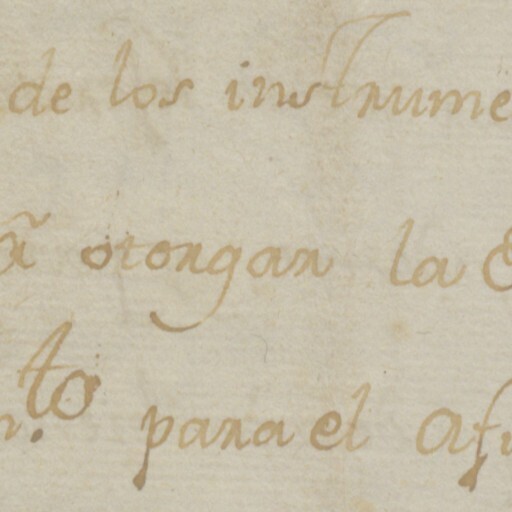 de los instrume
ã otorgar la
to para el